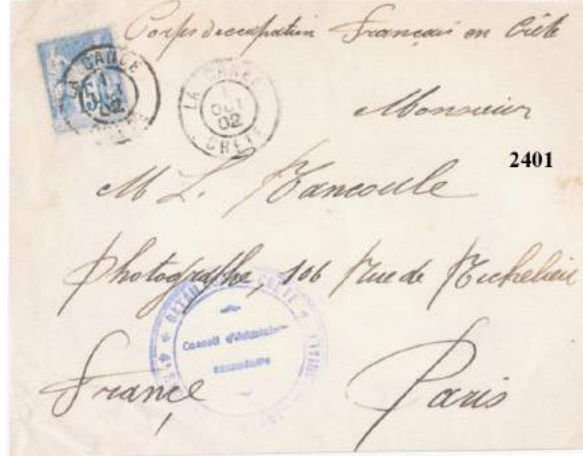 Corps d'occupation Français en Crète
LA CANÉE
15
02
LA CANÉE
1
OCT
02
CRETE
Monsieur
2401
M L.
Photographe, 106 Rue de Richelieu
Conseil d'Administration
secondaire
France
Paris